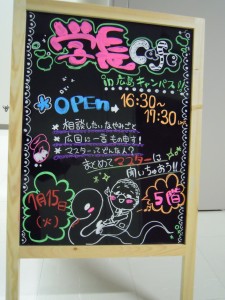 学長Cafe
in 広島キャンパス!!
OPEN
16:30～
17:30
相談したいなやみごと
広国に一言もの申す!
マスターってどんな人?
まとめてマスターに
聞いちゃおう!!
7月15日
(火)
5階